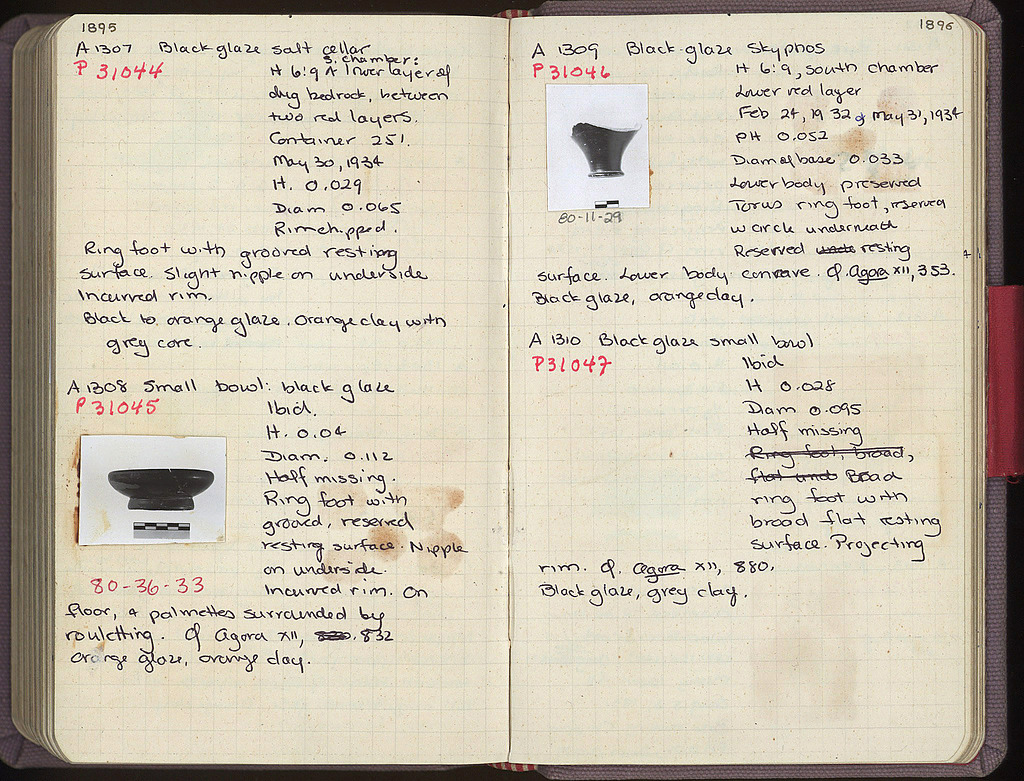 1895
A 1307 Black glaze salt cellar
P 31044
S. chamber:
H 6:9 A lower layer of
dug bedrock, between
two red layers.
Container 251.
May 30, 1934
H. 0.029
Diam 0.065
Rim chipped.
Ring foot with grooved resting
surface. Slight nipple on underside
Incurved rim.
Black to orange glaze. Orange clay with
grey core.
A 1308 Small bowl: black glaze
P 31045
Ibid.
H. 0.04
Diam. 0.112
Half missing.
Ring foot with
grooved, reserved
resting surface. Nipple
on underside.
80-36-33
Incurved rim. On
floor, 4 palmettes surrounded by
rouletting. Cf Agora XII, 832
Orange glaze, orange clay.
1896
A 1309 Black-glaze Skyphos
P 31046
H 6:9, south chamber
Lower red layer
Feb 24, 1932 & May 31, 1934
PH 0.052
Diam of base 0.033
Lower body preserved
Torus ring foot, reserved
w circle underneath
Reserved resting
80-11-29
surface. Lower body concave. Cf. Agora XII, 353.
Black glaze, orange clay.
A 1310 Black glaze small bowl
P 31047
Ibid
H 0.028
Diam 0.095
Half missing
Ring foot, broad,
flat und Broad
ring foot with
broad flat resting
surface. Projecting
rim. Cf. Agora XII, 880.
Black glaze, grey clay.